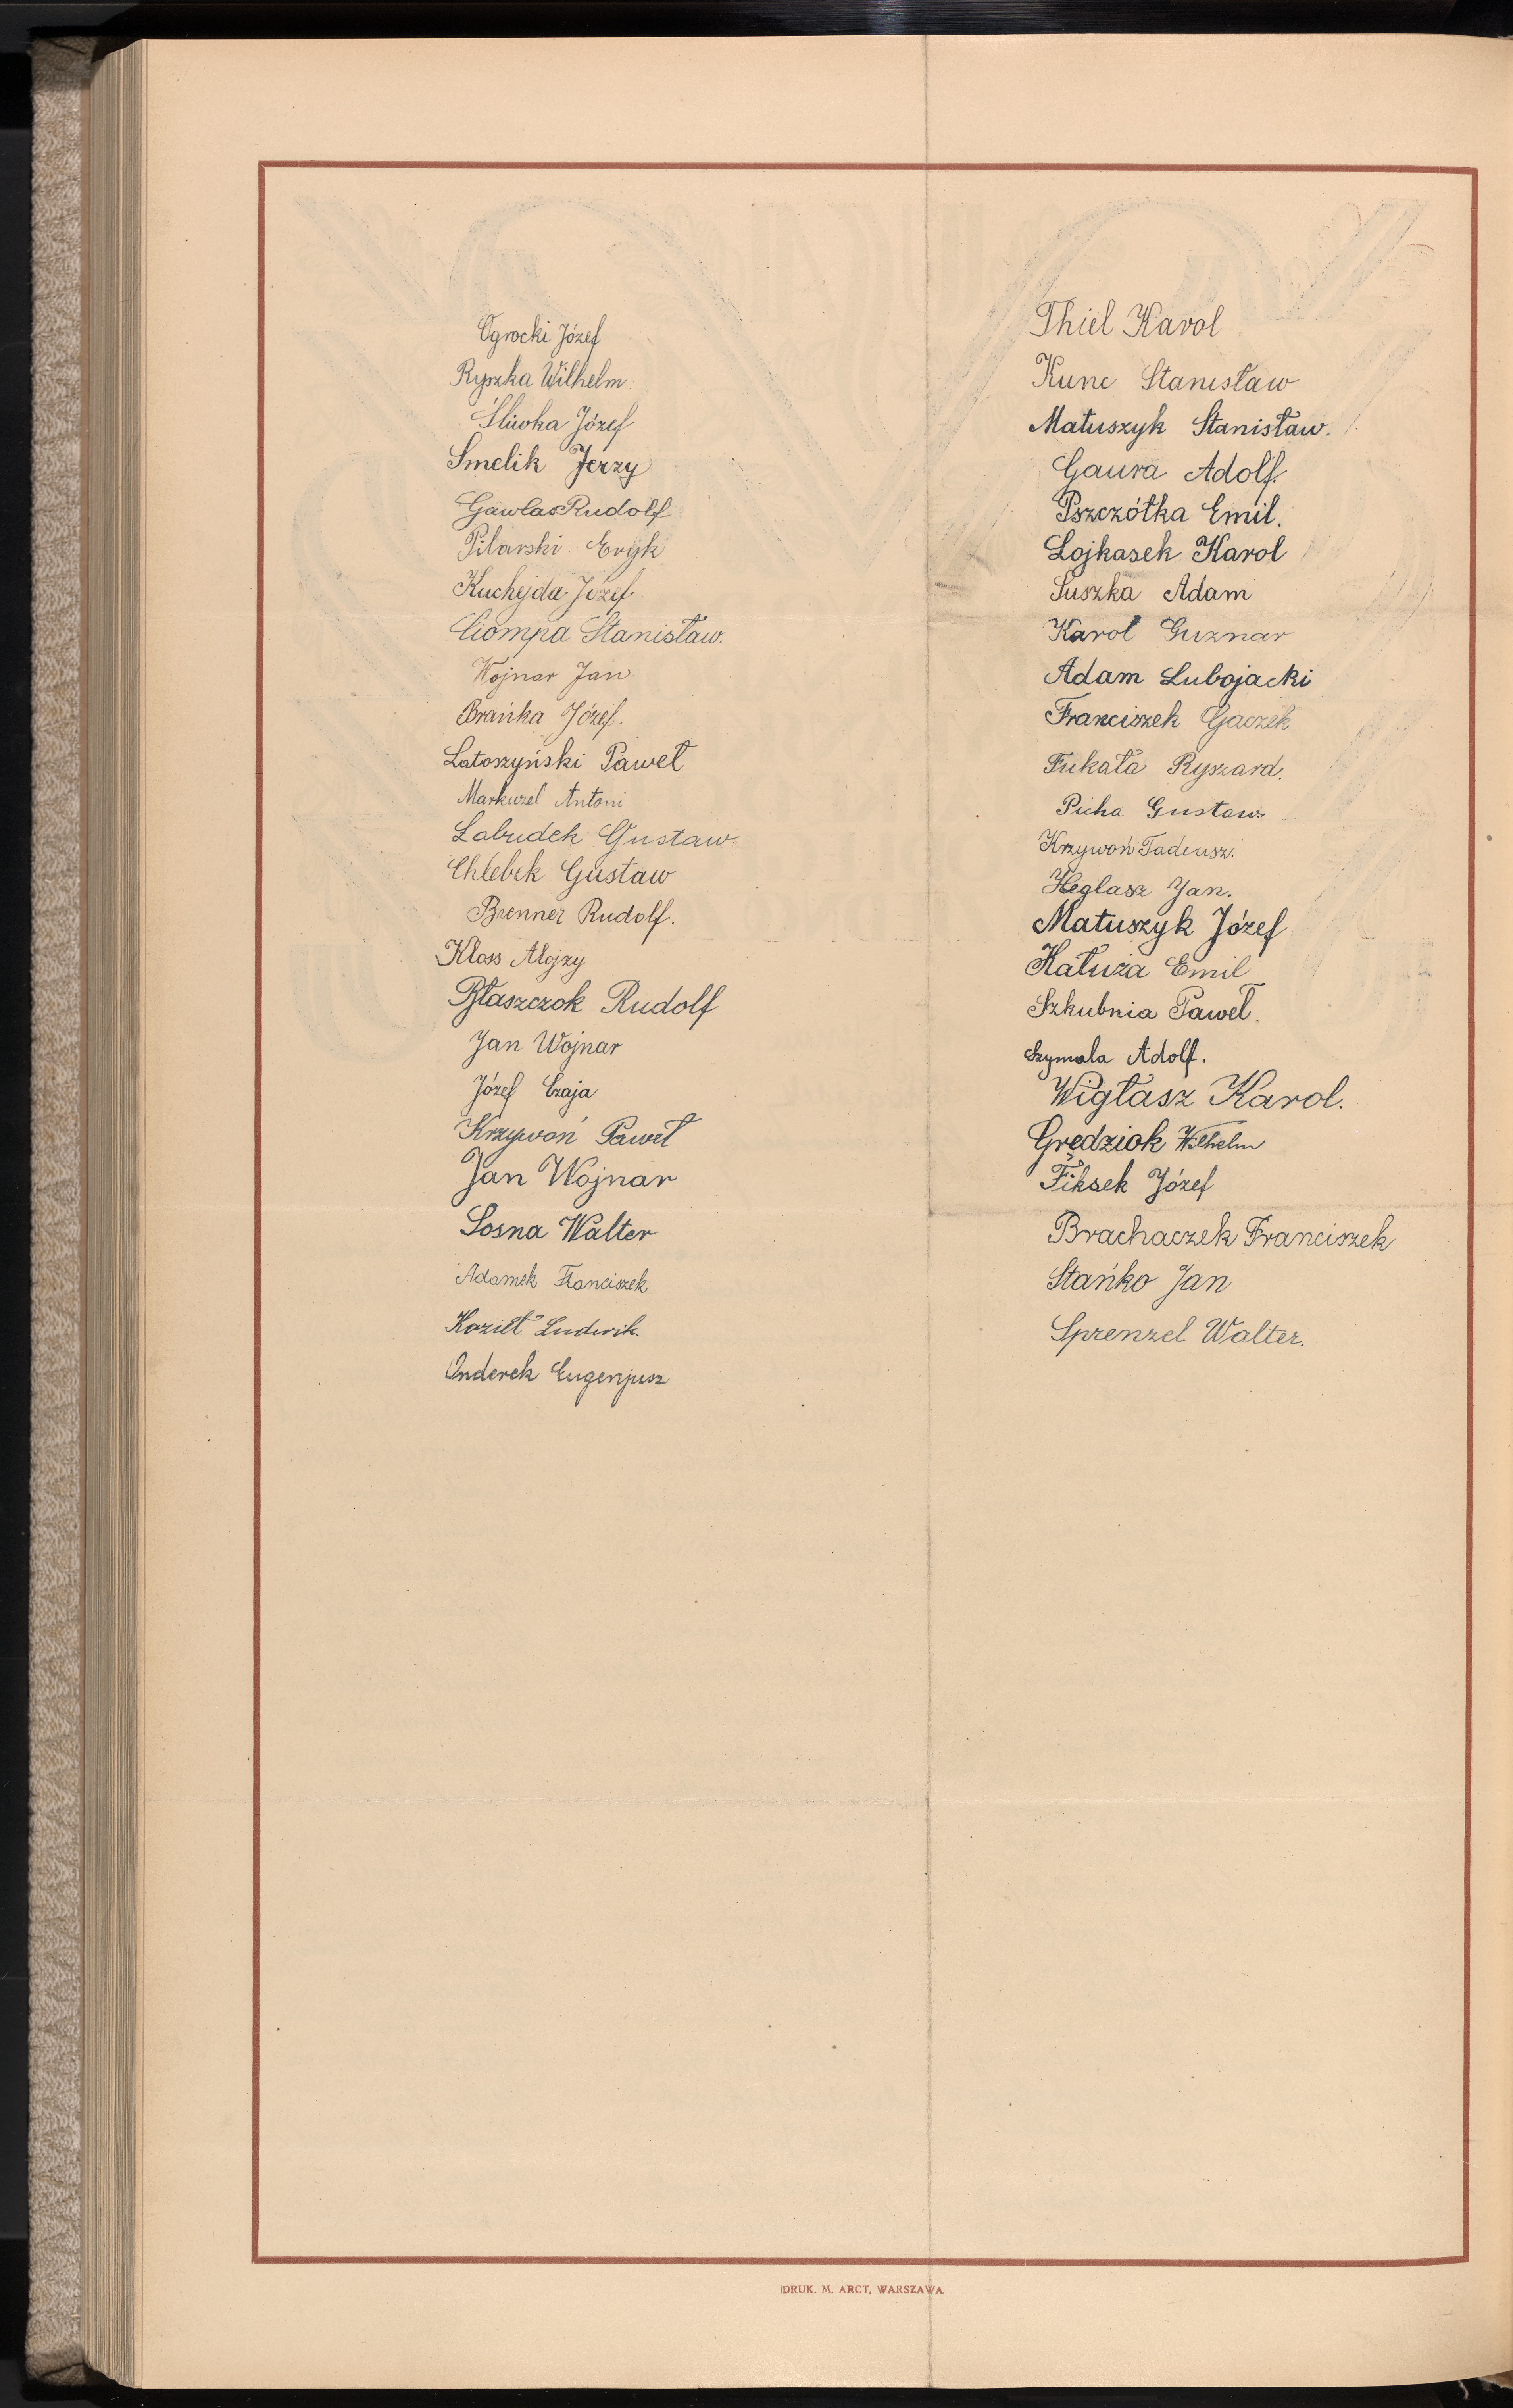 Ogrocki Józef
Ryszka Wilhelm
Śliwka Józef
Smelik Jerzy
Gawlas Rudolf
Pilarski Eryk
Kuchejda Józef
Ciompa Stanisław.
Wojnar Jan
Brańka Józef.
Latoszyński Paweł
Markuzel Antoni
Labudek Gustaw
Chlebek Gustaw
Brenner Rudolf.
Kloss Alojzy
Błaszczok Rudolf
Jan Wojnar
Józef Czaja
Krzywoń Paweł
Jan Wojnar
Sosna Walter
Adamek Franciszek
Kozieł Ludwik.
Onderek Eugenjusz
Thiel Karol
Kunc Stanisław
Matuszyk Stanisław.
Gaura Adolf.
Pszczółka Emil.
Lojkasek Karol
Suszka Adam
Karol Guznar
Adam Lubojacki
Franciszek Gaczek
Fukała Ryszard.
Picha Gustaw
Krzywoń Tadeusz.
Heglasz Jan.
Matuszyk Józef
Kałuża Emil
Szkubnia Paweł.
Szymala Adolf.
Wigłasz Karol.
Grędziok Wilhelm
Fiksek Józef
Brachaczek Franciszek
Stańko Jan
Sprenzel Walter.
DRUK. M. ARCT, WARSZAWA